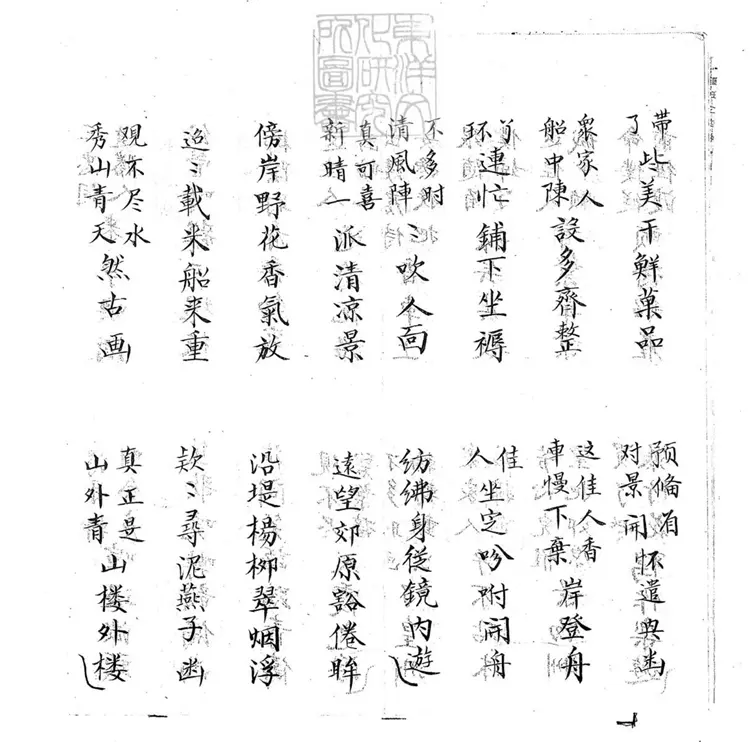 東洋文化研究所圖書
带了些美干鮮菓品
预俻有对景開怀遣興幽
眾家人船中陳設多齊整
这佳人香車慢下棄岸登舟
丫环連忙鋪下坐褥
佳人坐定吩咐開舟
不多时清風陣〻吹人面
彷彿身從鏡内遊
真可喜新晴一派清凉景
遠望郊原豁倦眸
傍岸野花香氣放
沿堤楊柳翠烟浮
迢〻載米船来重
款〻尋泥燕子幽
观不尽水秀山青天然古画
真正是山外青山楼外楼